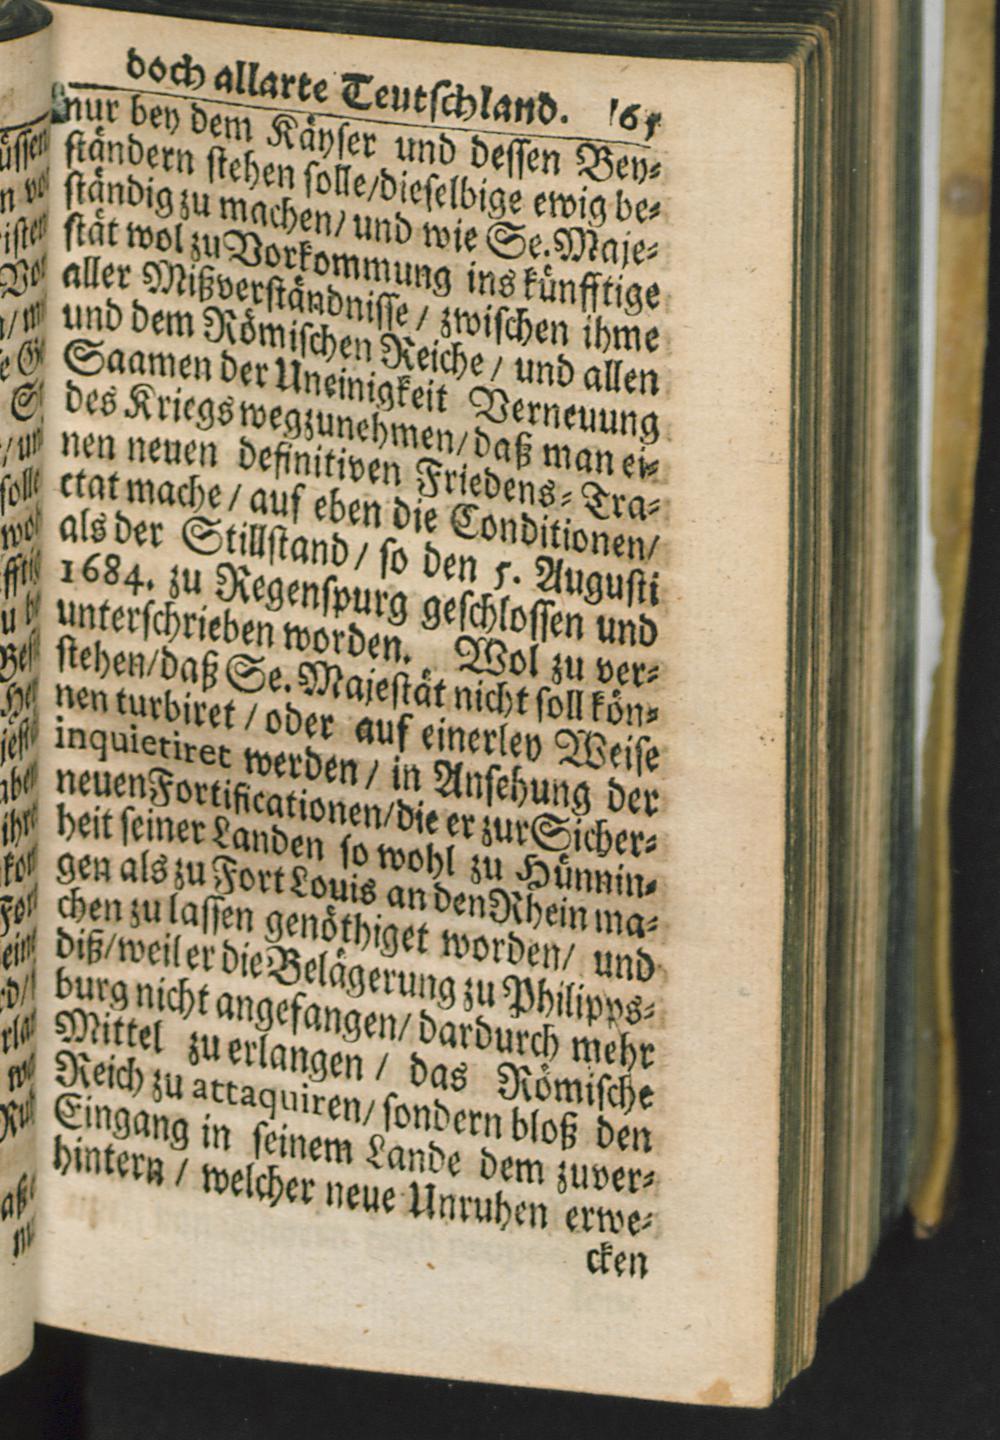 doch allarte Teutschland. 165
nur bey dem Käyser und dessen Bey⸗
ständern stehen solle/dieselbige ewig be⸗
ständig zu machen/ und wie Se. Maje⸗
stät wol zu Vorkommung ins künfftige
aller Mißverständnisse / zwischen ihme
und dem Römischen Reiche / und allen
Saamen der Uneinigkeit Verneuung
des Kriegs wegzunehmen/ daß man ei⸗
nen neuen definitiven Friedens⸗ Tra⸗
ctat mache / auf eben die Conditionen/
als der Stillstand / so den 5. Augusti
1684. zu Regenspurg geschlossen und
unterschrieben worden. Wol zu ver⸗
stehen/daß Se. Majestät nicht soll kön⸗
nen turbiret / oder auf einerley Weise
inquietiret werden / in Ansehung der
neuen Fortificationen/die er zur Sicher⸗
heit seiner Landen so wohl zu Hünnin⸗
gen als zu Fort Louis an den Rhein ma⸗
chen zu lassen genöthiget worden/ und
diß/weil er die Belägerung zu Philipps⸗
burg nicht angefangen/ dardurch mehr
Mittel zu erlangen / das Römische
Reich zu attaquiren/ sondern bloß den
Eingang in seinem Lande dem zuver⸗
hintern / welcher neue Unruhen erwe⸗
cken